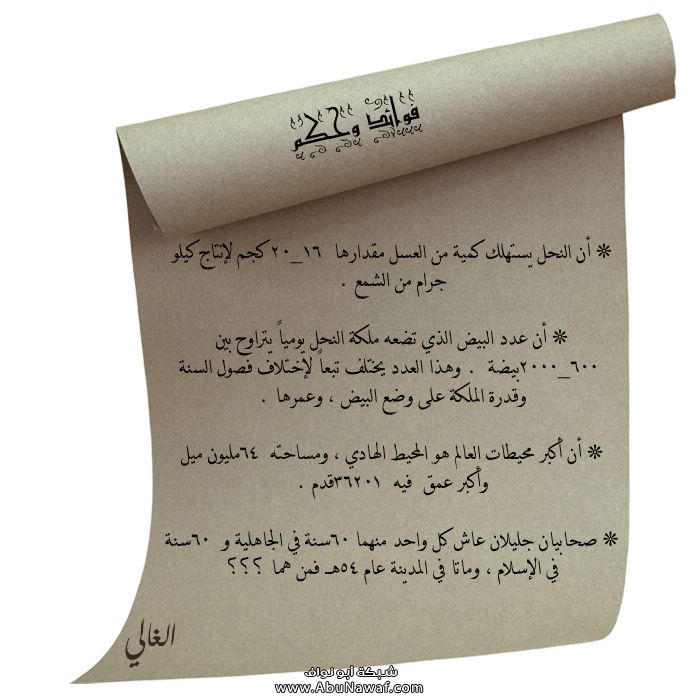 فوائد وحكم
❋ أن النحل يستهلك كمية من العسل مقدارها ١٦_٢٠ كجم لإنتاج كيلو
جرام من الشمع .
❋ أن عدد البيض الذي تضعه ملكة النحل يومياً يتراوح بين
٦٠٠_٢٠٠٠بيضة . وهذا العدد يختلف تبعاً لإختلاف فصول السنة
وقدرة الملكة على وضع البيض ، وعمرها .
❋ أن أكبر محيطات العالم هو المحيط الهادي ، ومساحته ٦٤مليون ميل
وأكبر عمق فيه ٣٦٢٠١قدم .
❋ صحابيان جليلان عاش كل واحد منهما ٦٠سنة في الجاهلية و ٦٠سنة
في الإسلام ، وماتا في المدينة عام ٥٤هـ فمن هما ؟؟؟
الغالي
شبكة أبو نواف
www.AbuNawaf.com